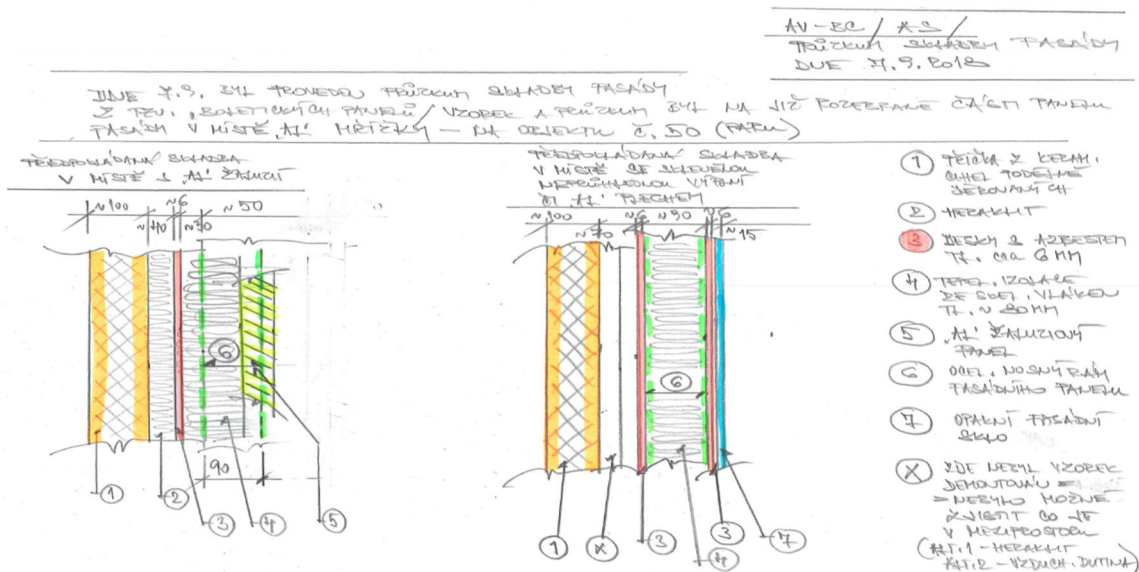 AV-BC / AS /
PRŮZKUM SKLADBY FASÁDY
DNE 7.9. 2018
DNE 7.9. BYL PROVEDEN PRŮZKUM SKLADBY FASÁDY
Z TZV. „BOLETICKÝCH PANELŮ / VZOREK A PRŮZKUM BYL NA JIŽ ROZEBRANÉ ČÁSTI PANELU
FASÁDY V MÍSTĚ „AL" MŘÍŽKY – NA OBJEKTU Č. 50 (PATRU)
PŘEDPOKLÁDANÁ SKLADBA
V MÍSTĚ S „AL" ŽALUZIÍ
~100
~40
~6
~50
90
1
2
3
4
5
6
PŘEDPOKLÁDANÁ SKLADBA
V MÍSTĚ SE SKLENĚNOU
NEPRŮHLEDNOU VÝPLNÍ
ČI „AL" PLECHEM
~100
~6
~90
~6
~15
1
X
3
4
3
7
6
1 PŘÍČKA Z KERAM.
CIHEL PODÉLNĚ
DĚROVANÝCH
2 HERAKLIT
3 DESKY S AZBESTEM
TL. CCA 6 MM
4 TEPEL. IZOLACE
ZE SKEL. VLÁKEN
5 „AL" ŽALUZIOVÝ
PANEL
6 OCEL. NOSNÝ RÁM
FASÁDNÍHO PANELU
7 OPAKNÍ FASÁDNÍ
SKLO
X ZDE NEBYL VZOREK
DEMONTOVÁN =
> NEBYLO MOŽNÉ
ZJISTIT CO JE
V MEZIPROSTORU
(ALT.1 - HERAKLIT
ALT.2 - VZDUCH. DUTINA)